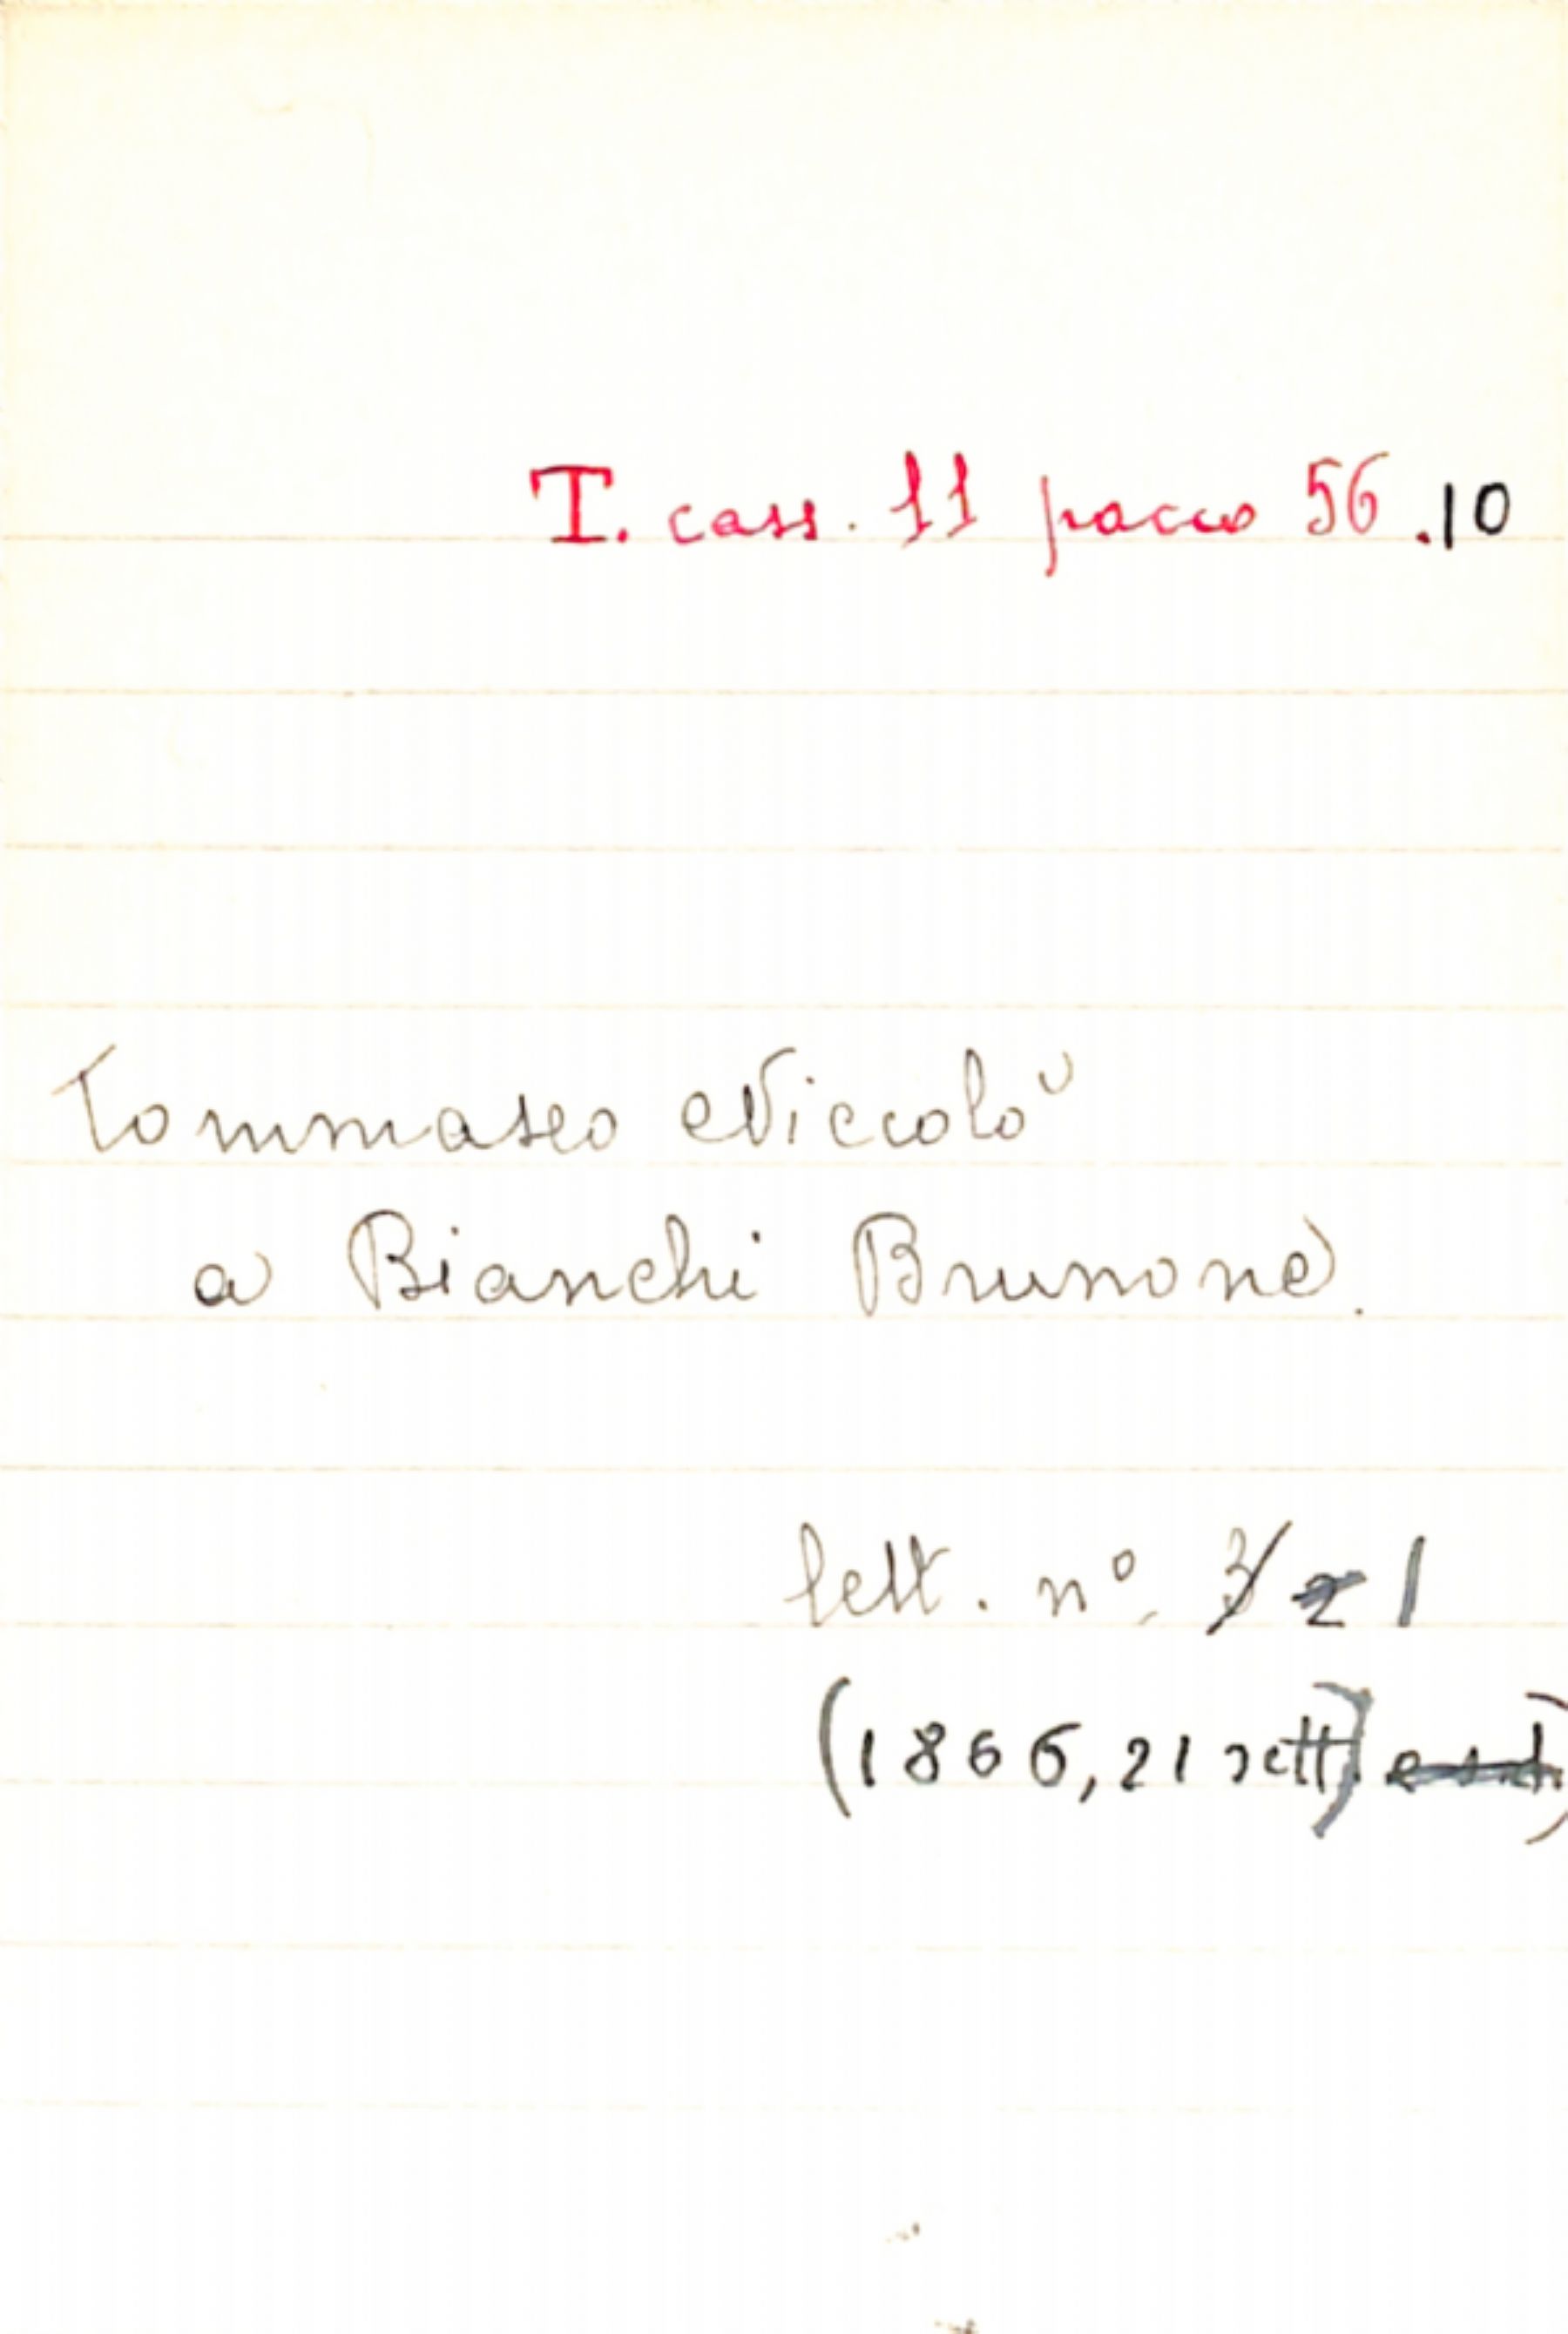 T. cass. 11 pacco 56.10
Tommaseo Niccolò
a Bianchi Brunone.
lett. n° 3 2 1
(1866, 21 sett)